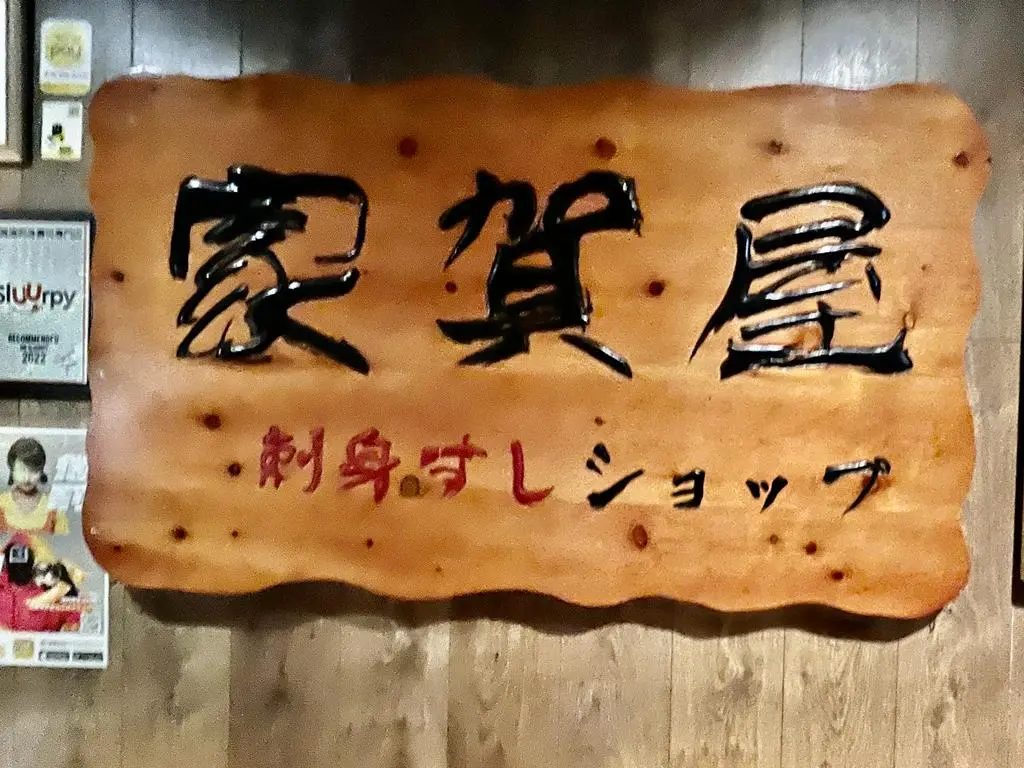 家賀屋
刺身すしショップ
Sluurpy
RECOMMENDED
2022